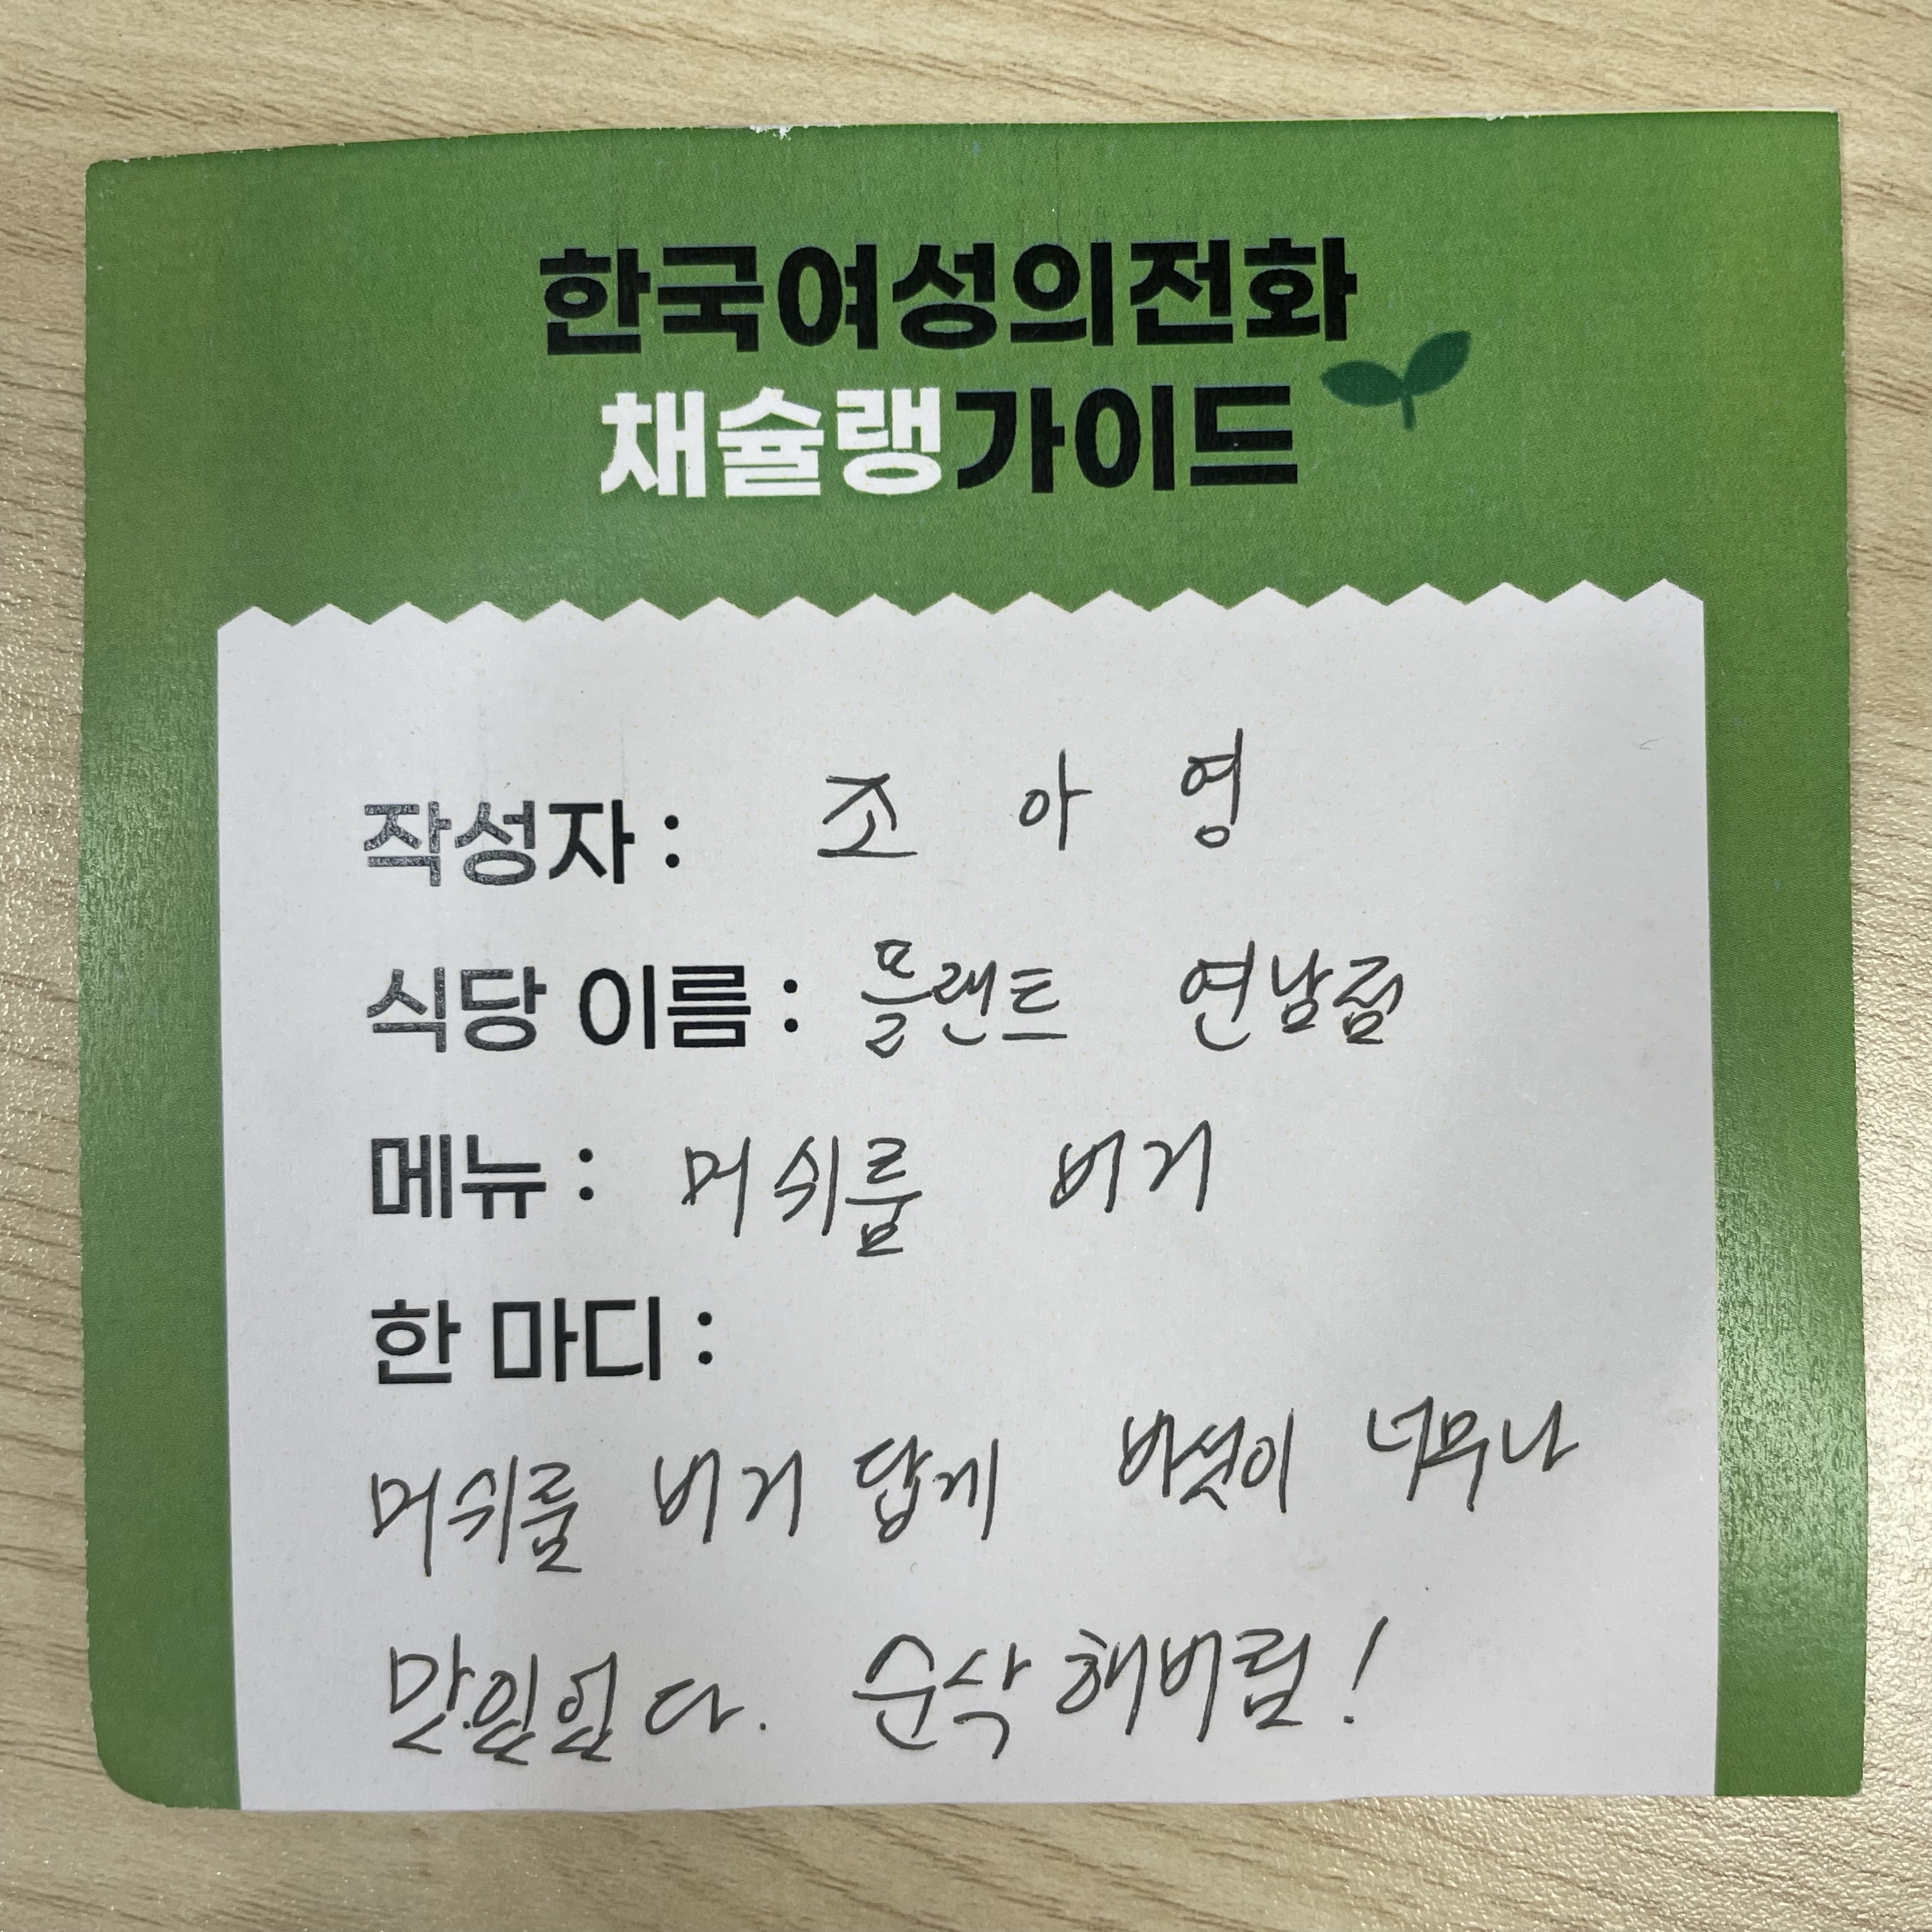 한국여성의전화
채슐랭가이드
작성자 : 조아영
식당 이름 : 플랜트 연남점
메뉴 : 머쉬룸 버거
한 마디 :
머쉬룸 버거 답게 버섯이 너무나
맛있었다. 순삭해버림!